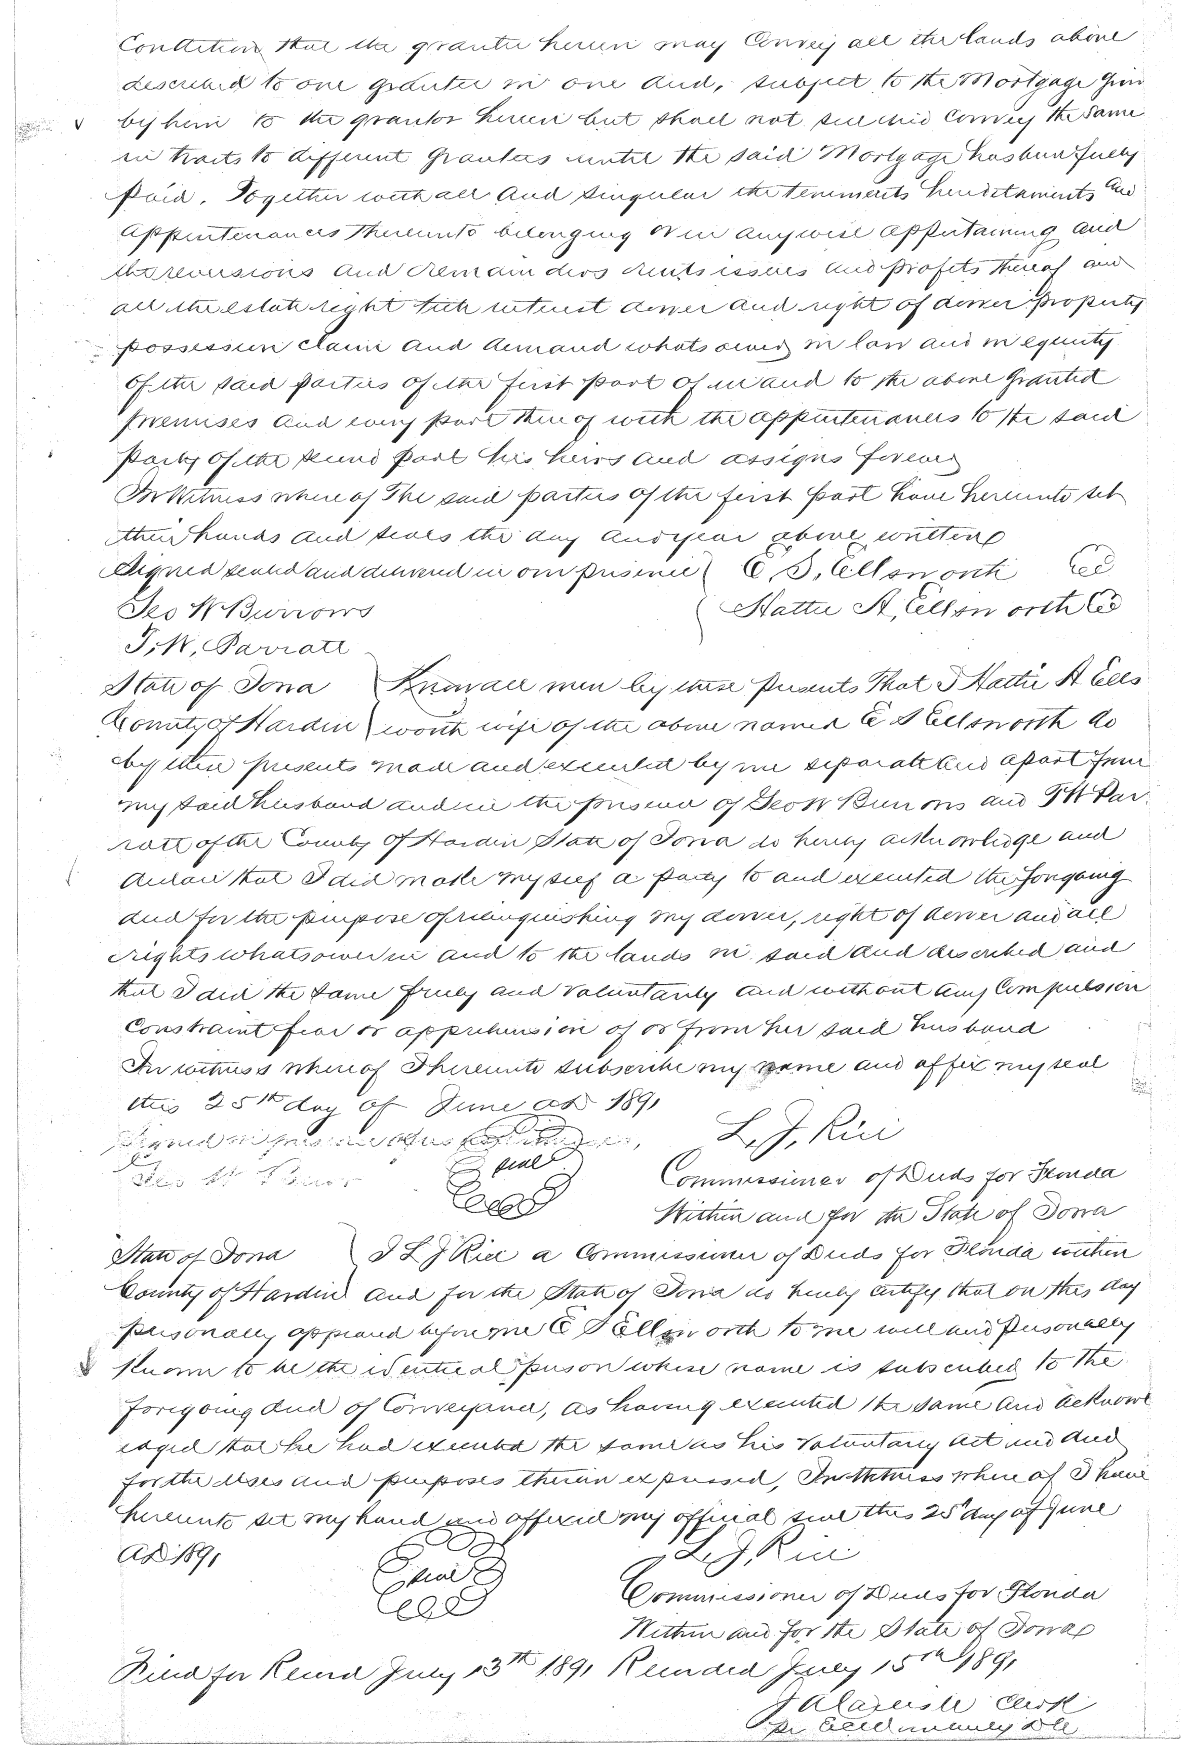 Condition that the grantee herein may Convey all the lands above
described to one grantee in one deed, subject to the Mortgage given
by him to the grantor herein but shall not sell and Convey the same
in tracts to different grantees until the said Mortgage has been fully
paid. Together with all and singular the tenements hereditaments and
appurtenances thereunto belonging or in anywise appertaining and
the reversions and remainders rents issues and profits thereof and
all the estate right title interest dower and right of dower property
possession claim and demand whatsoever in law and in equity
of the said parties of the first part of in and to the above Granted
premises and every part thereof with the appurtenances to the said
party of the second part his heirs and assigns forever
In Witness where of The said parties of the first part have hereunto set
their hands and seals the day and year above written
Signed sealed and delivered in our presence E. S. Ellsworth
Geo W Burrows Hattie A. Ellsworth
T. W. Parratt
State of Iowa Know all men by these presents That I Hattie A Ells
County of Hardin worth wife of the above named E S Ellsworth do
by these presents made and executed by me separate and apart from
my said husband and in the presence of Geo W Burrows and T W Par
ratt of the County of Hardin State of Iowa do hereby acknowledge and
declare that I did make myself a party to and executed the foregoing
deed for the purpose of relinquishing my dower, right of dower and all
rights whatsoever in and to the lands in said deed described and
that I did the same freely and voluntarily and without any Compulsion
Constraint fear or apprehension of or from her said husband
In witness where of I hereunto subscribe my name and affix my seal
this 25th day of June AD 1891
Signed in presence of L. J. Rice
Geo W seal Commissioner of Deeds for Florida
Within and for the State of Iowa
State of Iowa I L J Rice a Commissioner of Deeds for Florida within
County of Hardin and for the State of Iowa do hereby certify that on this day
personally appeared before me E S Ellsworth to me well and personally
known to be the identical person whose name is subscribed to the
foregoing deed of Conveyance, as having executed the same and acknowl
edged that he had executed the same as his voluntary act and deed
for the uses and purposes therein expressed, In Witness where of I have
hereunto set my hand and affixed my official seal this 25th day of June
AD 1891 seal L. J. Rice
Commissioner of Deeds for Florida
Within and for the State of Iowa
Filed for Record July 13th 1891 Recorded July 15th 1891
Clerk